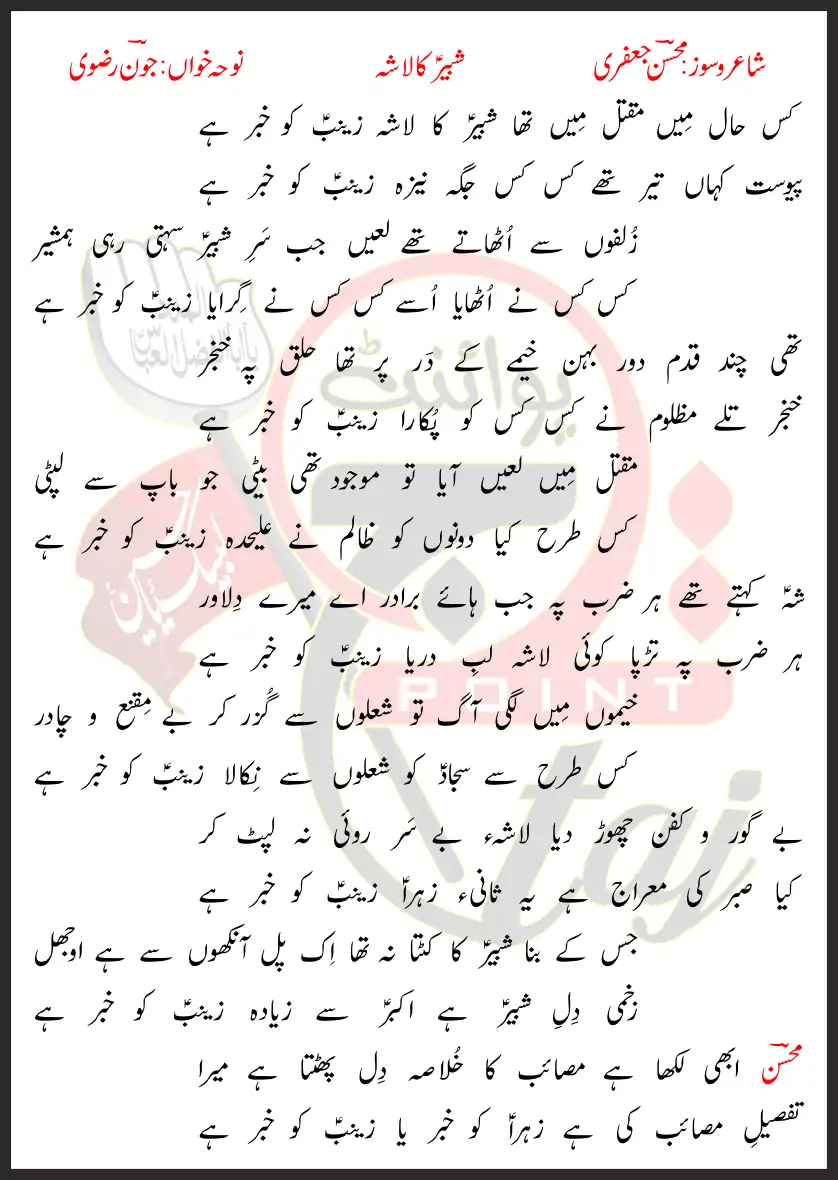 شاعر و سوز: محسنؔ جعفری
شبیرؑ کا لاشہ
نوحہ خواں: جونؔ رضوی
کس حال مِیں مقتل مِیں تھا شبیرؑ کا لاشہ زینبؑ کو خبر ہے
پیوست کہاں تیر تھے کس کس جگہ نیزہ زینبؑ کو خبر ہے
زُلفوں سے اُٹھاتے تھے لعیں جب سَرِ شبیرؑ سہتی رہی ہمشیر
کس کس نے اُٹھایا اُسے کس کس نے گِرایا زینبؑ کو خبر ہے
تھی چند قدم دور بہن خیمے کے دَر پر تھا حلق پہ خنجر
خنجر تلے مظلوم نے کس کس کو پُکارا زینبؑ کو خبر ہے
مقتل مِیں لعیں آیا تو موجود تھی بیٹی جو باپ سے لپٹی
کس طرح کیا دونوں کو ظالم نے علیحدہ زینبؑ کو خبر ہے
شہؑ کہتے تھے ہر ضرب پہ جب ہائے برادر اے میرے دِلاور
ہر ضرب پہ تڑپا کوئی لاشہ لبِ دریا زینبؑ کو خبر ہے
خیموں مِیں لگی آگ تو شعلوں سے گُزر کر بے مِقنع و چادر
کس طرح سے سجادؑ کو شعلوں سے نِکالا زینبؑ کو خبر ہے
بے گور و کفن چھوڑ دیا لاشہء بے سَر روئی نہ لپٹ کر
کیا صبر کی معراج ہے یہ ثانیء زہراؑ زینبؑ کو خبر ہے
جس کے بنا شبیرؑ کا کٹتا نہ تھا اِک پل آنکھوں سے ہے اوجھل
زخمی دِلِ شبیرؑ ہے اکبرؑ سے زیادہ زینبؑ کو خبر ہے
محسنؔ ابھی لکھا ہے مصائب کا خُلاصہ دِل پھٹتا ہے میرا
تفصیلِ مصائب کی ہے زہراؑ کو خبر یا زینبؑ کو خبر ہے
پوائنٹ
POINT
taj
لبیک یا حسین